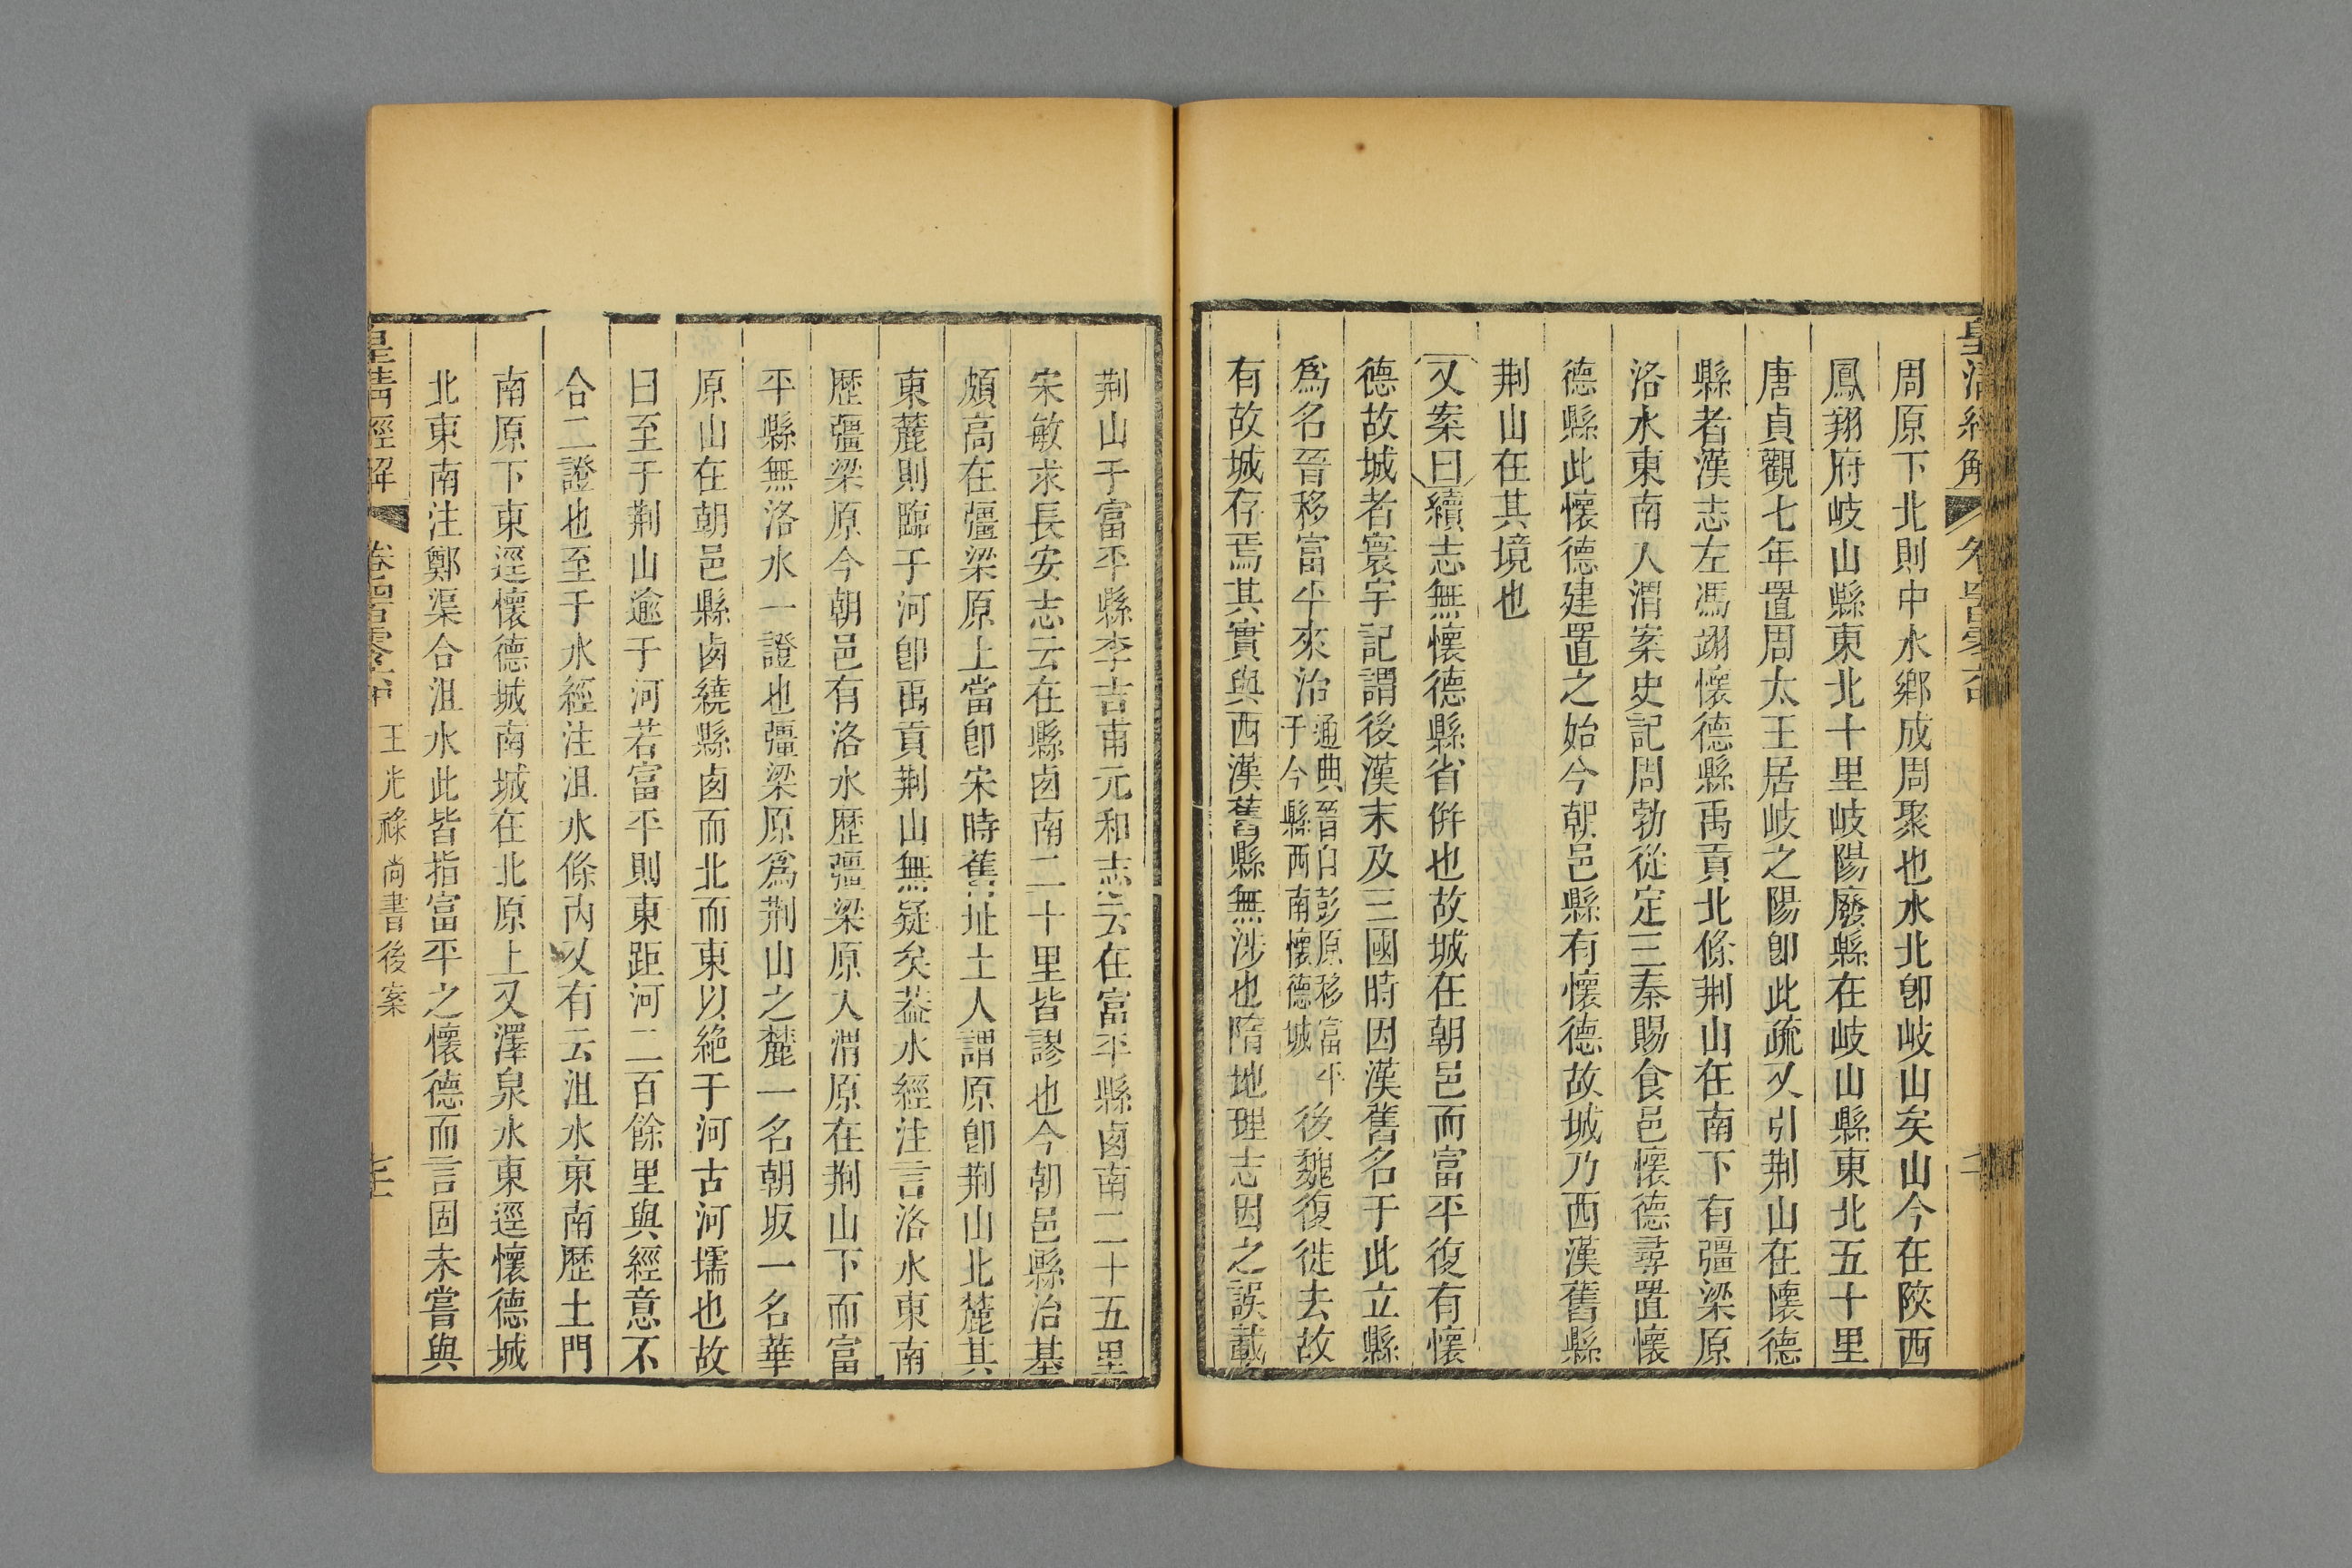 周原下北則中水鄉成周聚也水北卽岐山矣山今在陝西
鳳翔府岐山縣東北十里岐陽廢縣在岐山縣東北五十里
唐貞觀七年置周太王居岐之陽卽此疏又引荆山在懷德
縣者漢志左馮翊懷德縣禹貢北條荆山在南下有彊梁原
洛水東南入渭案史記周勃從定三秦賜食邑懷德尋置懷
德縣此懷德建置之始今朝邑縣有懷德故城乃西漢舊縣
荆山在其境也
又案曰續志無懷德縣省併也故城在朝邑而富平復有懷
德故城者寰宇記謂後漢末及三國時因漢舊名于此立縣
爲名晉移富平來治通典晉自彭原移富平于今縣西南懷德城後魏復徙去故
有故城存焉其實與西漢舊縣無涉也隋地理志因之誤載
荆山于富平縣李吉甫元和志云在富平縣西南二十五里
宋敏求長安志云在縣西南二十里皆謬也今朝邑縣治基
頗高在彊梁原上當卽宋時舊址土人謂原卽荆山北麓其
東麓則臨于河卽禹貢荆山無疑矣葢水經注言洛水東南
歷彊梁原今朝邑有洛水歷彊梁原入渭原在荆山下而富
平縣無洛水一證也彊梁原爲荆山之麓一名朝坂一名華
原山在朝邑縣西繞縣西而北而東以絶于河古河壖也故
曰至于荆山逾于河若富平則東距河二百餘里與經意不
合二證也至于水經注沮水條內又有云沮水東南歷土門
南原下東逕懷德城南城在北原上又澤泉水東逕懷德城
北東南注鄭渠合沮水此皆指富平之懷德而言固未嘗與
皇清經解
王光祿尚書後案